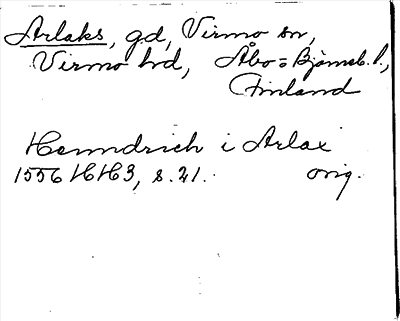 Arlaks, gd, Virmo sn,
Virmo hd, Åbo=Björneb. l.,
Finland
Henndrich i Arlax
1556 HH3, s. 21. orig.